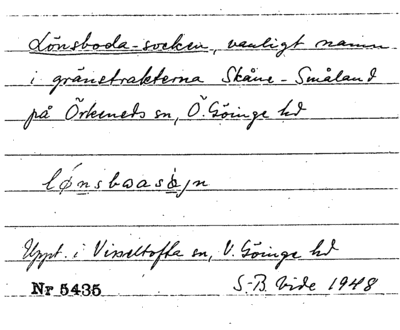 Lönsboda-socken, vanligt namn
i gränstrakterna Skåne-Småland
på Örkeneds sn, Ö. Göinge hd
Uppt. i Visseltofta sn, V. Göinge hd
Nr 5435 S-B. Vide 1948